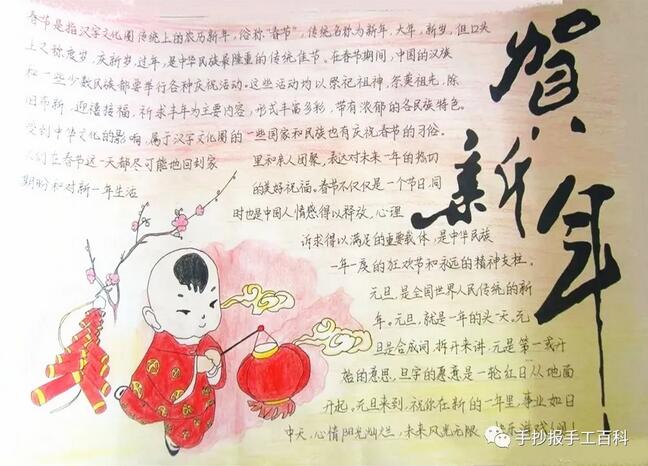 春节是指汉字文化圈传统上的农历新年,俗称"春节",传统名称为新年、大年、新岁,但口头
上又称度岁、庆新岁、过年,是中华民族最隆重的传统佳节。在春节期间,中国的汉族
和一些少数民族都要举行各种庆祝活动。这些活动均以祭祀祖神、祭奠祖先、除
旧布新、迎禧接福、祈求丰年为主要内容,形式丰富多彩,带有浓郁的各民族特色。
受到中华文化的影响,属于汉字文化圈的一些国家和民族也有庆祝春节的习俗。
人们在春节这一天都尽可能地回到家里和亲人团聚,表达对未来一年的热切
期盼和对新一年生活的美好祝福。春节不仅仅是一个节日,同
时也是中国人情感得以释放、心理
诉求得以满足的重要载体,是中华民族
一年一度的狂欢节和永远的精神支柱。
元旦,是全国世界人民传统的新
年。元旦,就是一年的头一天。元
旦是合成词,拆开来讲,元是第一或开
始的意思,旦字的愿意是一轮红日从地面
升起。元旦来到,祝你在新的一年里,事业如日
中天,心情阳光灿烂,未来风光无限
贺新年
手抄报手工百科